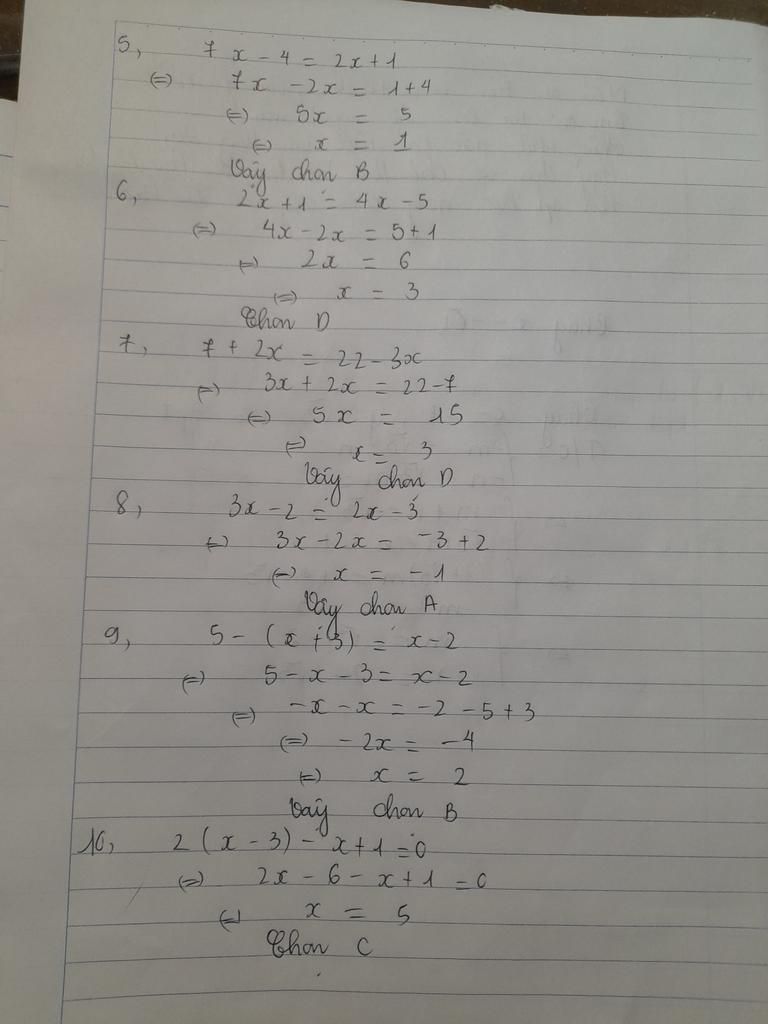 5, 7x - 4 = 2x + 1
(=) 7x - 2x = 1+4
(=) 5x = 5
(=) x = 1
Vậy chọn B
6, 2x + 1 = 4x - 5
(=) 4x - 2x = 5+1
(=) 2x = 6
(=) x = 3
Chọn D
7, 7 + 2x = 22 - 3x
(=) 3x + 2x = 22 - 7
(=) 5x = 15
(=) x = 3
Vậy chọn D
8, 3x - 2 = 2x - 3
(=) 3x - 2x = -3 + 2
(=) x = -1
Vậy chọn A
9, 5 - (x + 3) = x - 2
(=) 5 - x - 3 = x - 2
(=) -x - x = -2 - 5 + 3
(=) -2x = -4
(=) x = 2
Vậy chọn B
10, 2(x - 3) - x + 1 = 0
(=) 2x - 6 - x + 1 = 0
(=) x = 5
Chọn C